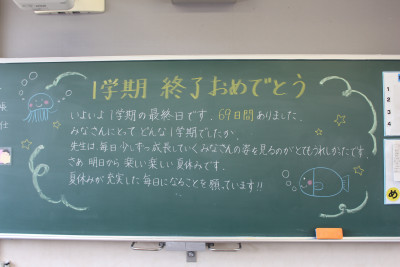 1学期 終了おめでとう
いよいよ1学期の最終日です。69日間ありました。
みなさんにとって どんな1学期でしたか。
先生は、毎日少しずつ成長していくみなさんの姿を見るのがとてもうれしかったです。
さあ 明日から 楽しい楽しい夏休みです。
夏休みが充実した毎日になることを願っています!!
1
2
3
4
め